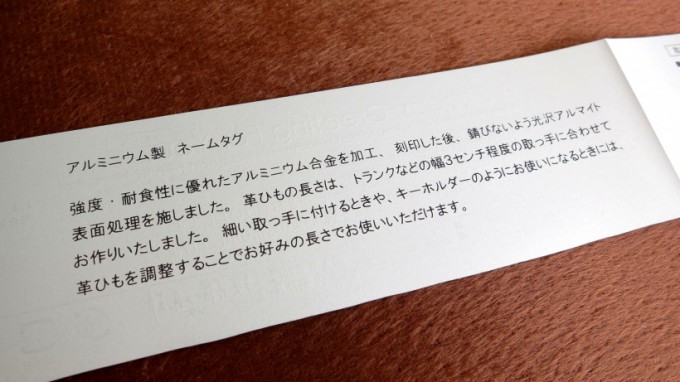 アルミニウム製 ネームタグ
強度・耐食性に優れたアルミニウム合金を加工、刻印した後、錆びないよう光沢アルマイト
表面処理を施しました。革ひもの長さは、トランクなどの幅3センチ程度の取っ手に合わせて
お作りいたしました。細い取っ手に付けるときや、キーホルダーのようにお使いになるときには、
革ひもを調整することでお好みの長さでお使いいただけます。